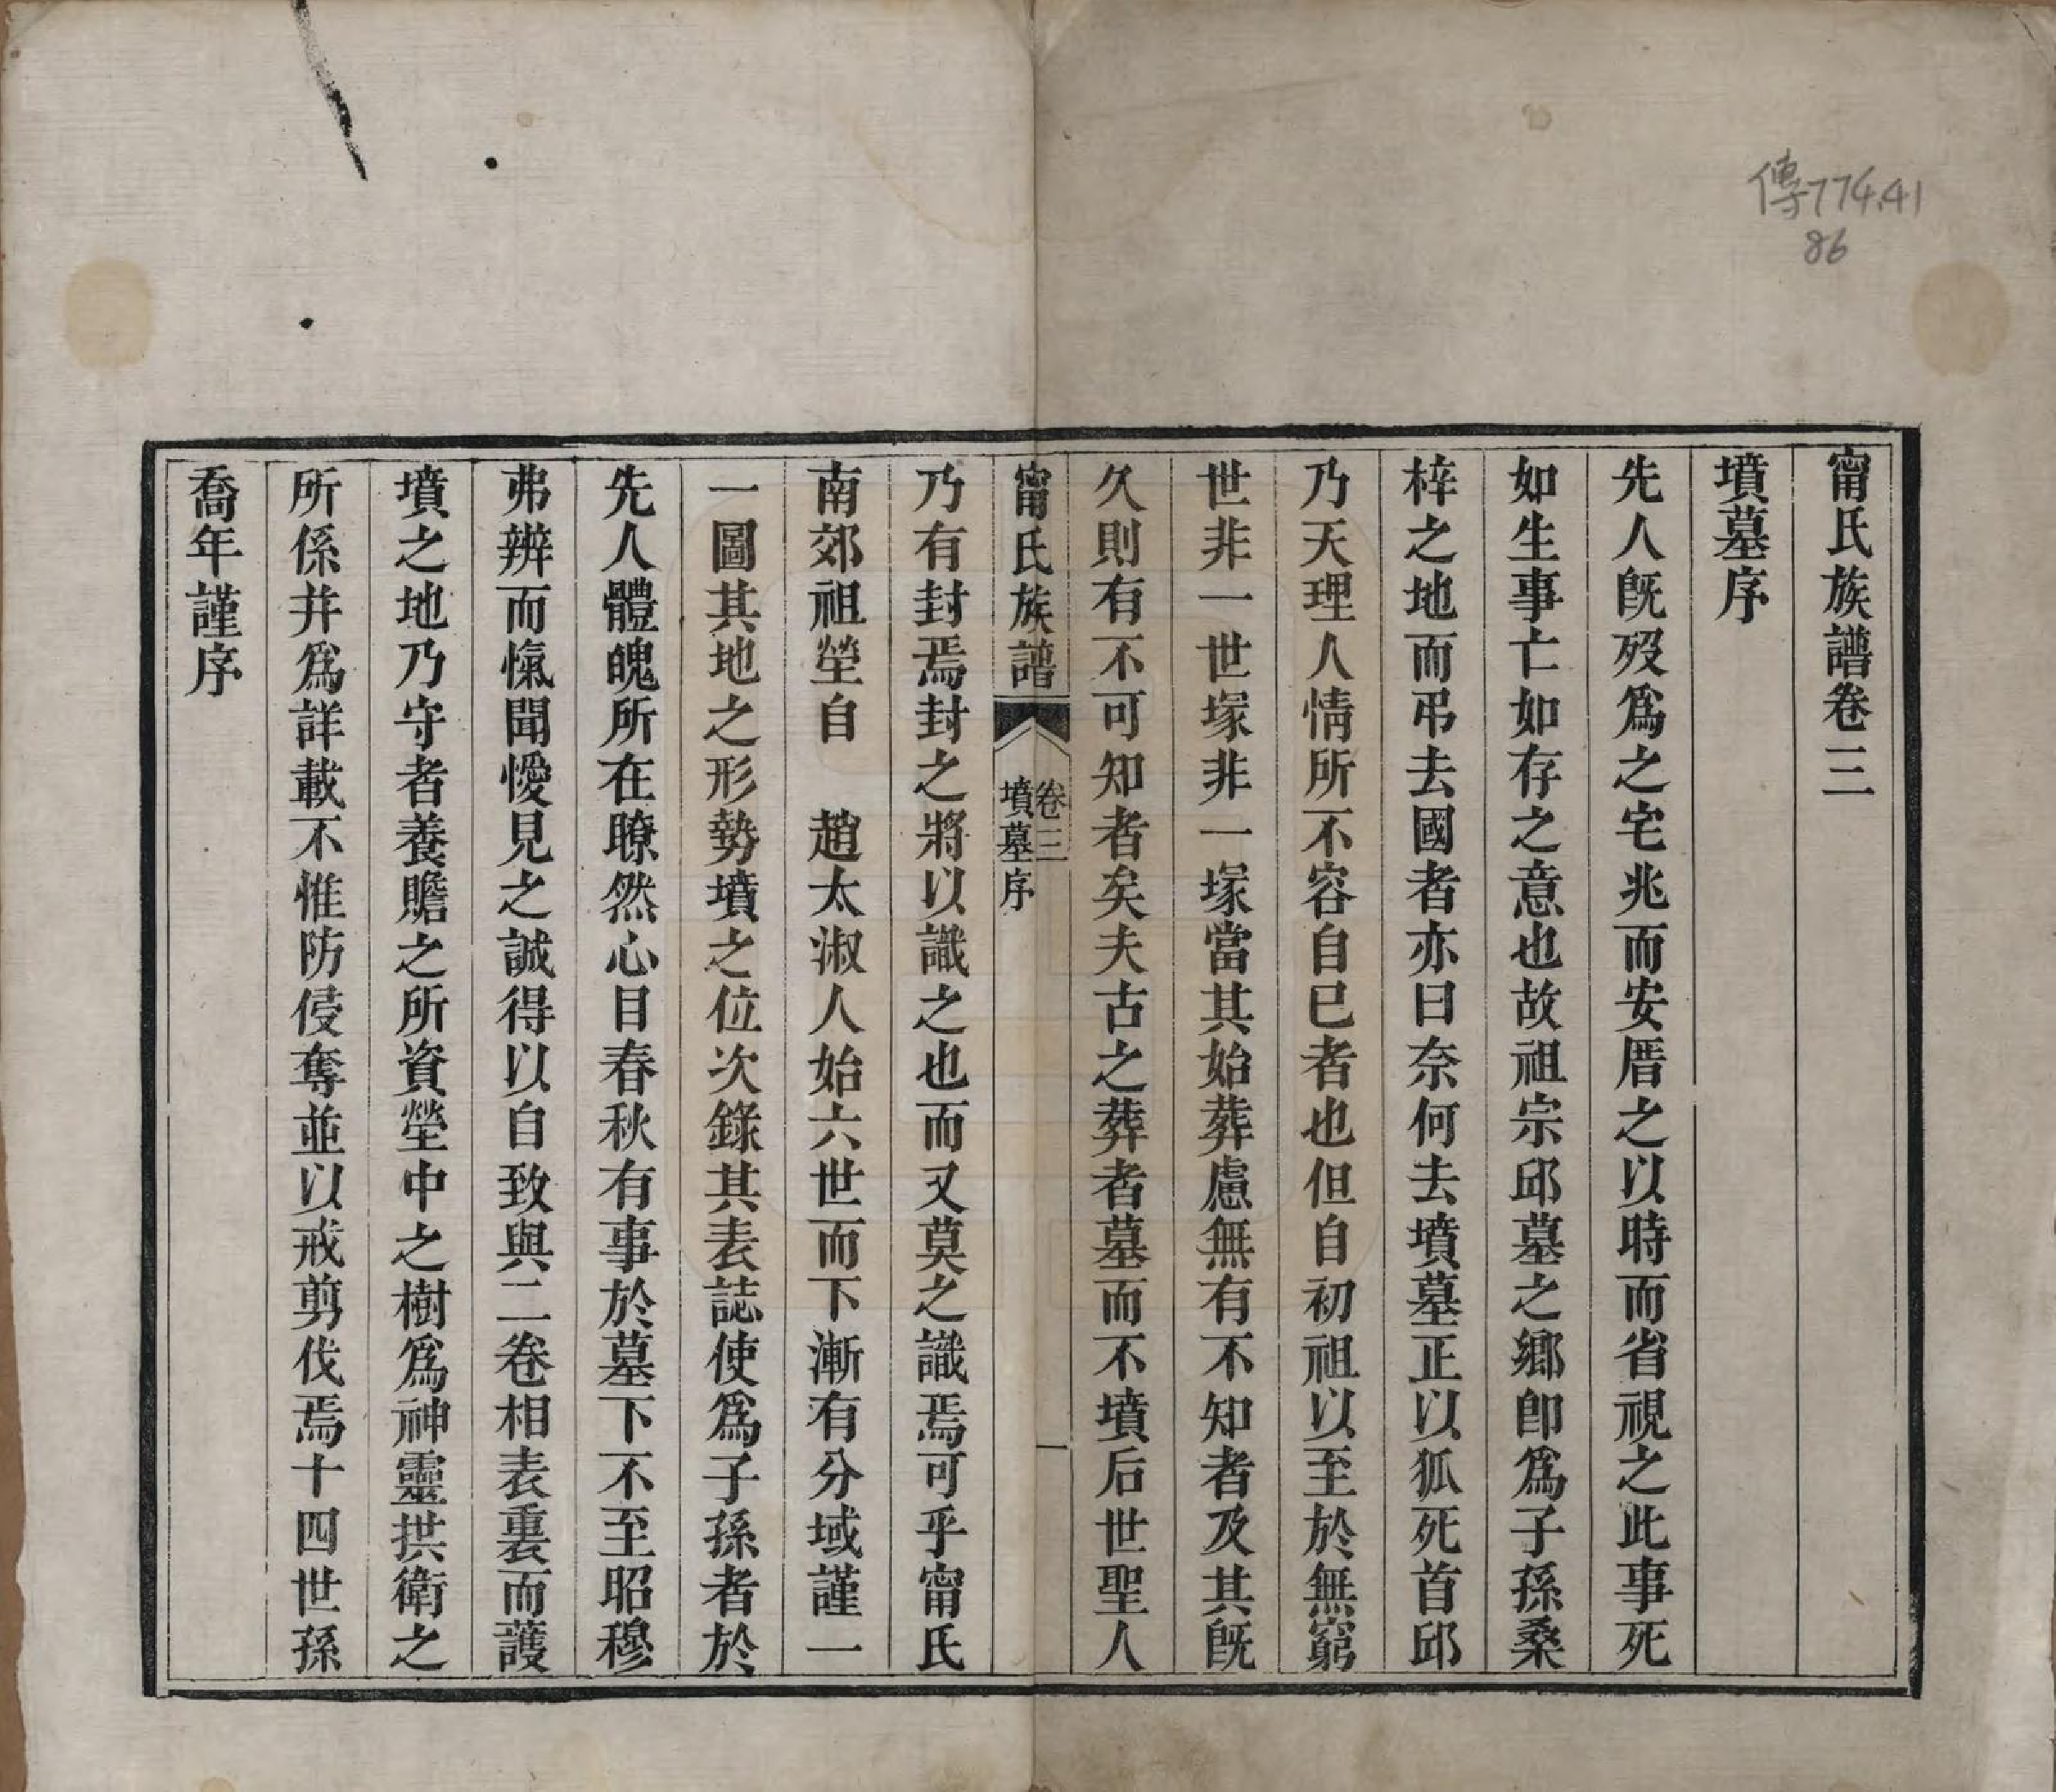 傳774.41
86
甯氏族譜卷三
墳墓序
先人旣歿爲之宅兆而安厝之以時而省視之此事死
如生事亡如存之意也故祖宗邱墓之鄉卽爲子孫桑
梓之地而弔去國者亦曰奈何去墳墓正以狐死首邱
乃天理人情所不容自已者也但自初祖以至於無窮
世非一世塚非一塚當其始葬慮無有不知者及其旣
久則有不可知者矣夫古之葬者墓而不墳后世聖人
甯氏族譜 卷三 墳墓序 一
乃有封焉封之將以識之也而又莫之識焉可乎甯氏
南郊祖塋自 趙太淑人始六世而下漸有分域謹一
一圖其地之形勢墳之位次錄其表誌使爲子孫者於
先人體魄所在瞭然心目春秋有事於墓下不至昭穆
弗辨而愾聞僾見之誠得以自致與二卷相表裏而護
墳之地乃守者養贍之所資塋中之樹爲神靈拱衛之
所係幷爲詳載不惟防侵奪並以戒剪伐焉十四世孫
喬年謹序